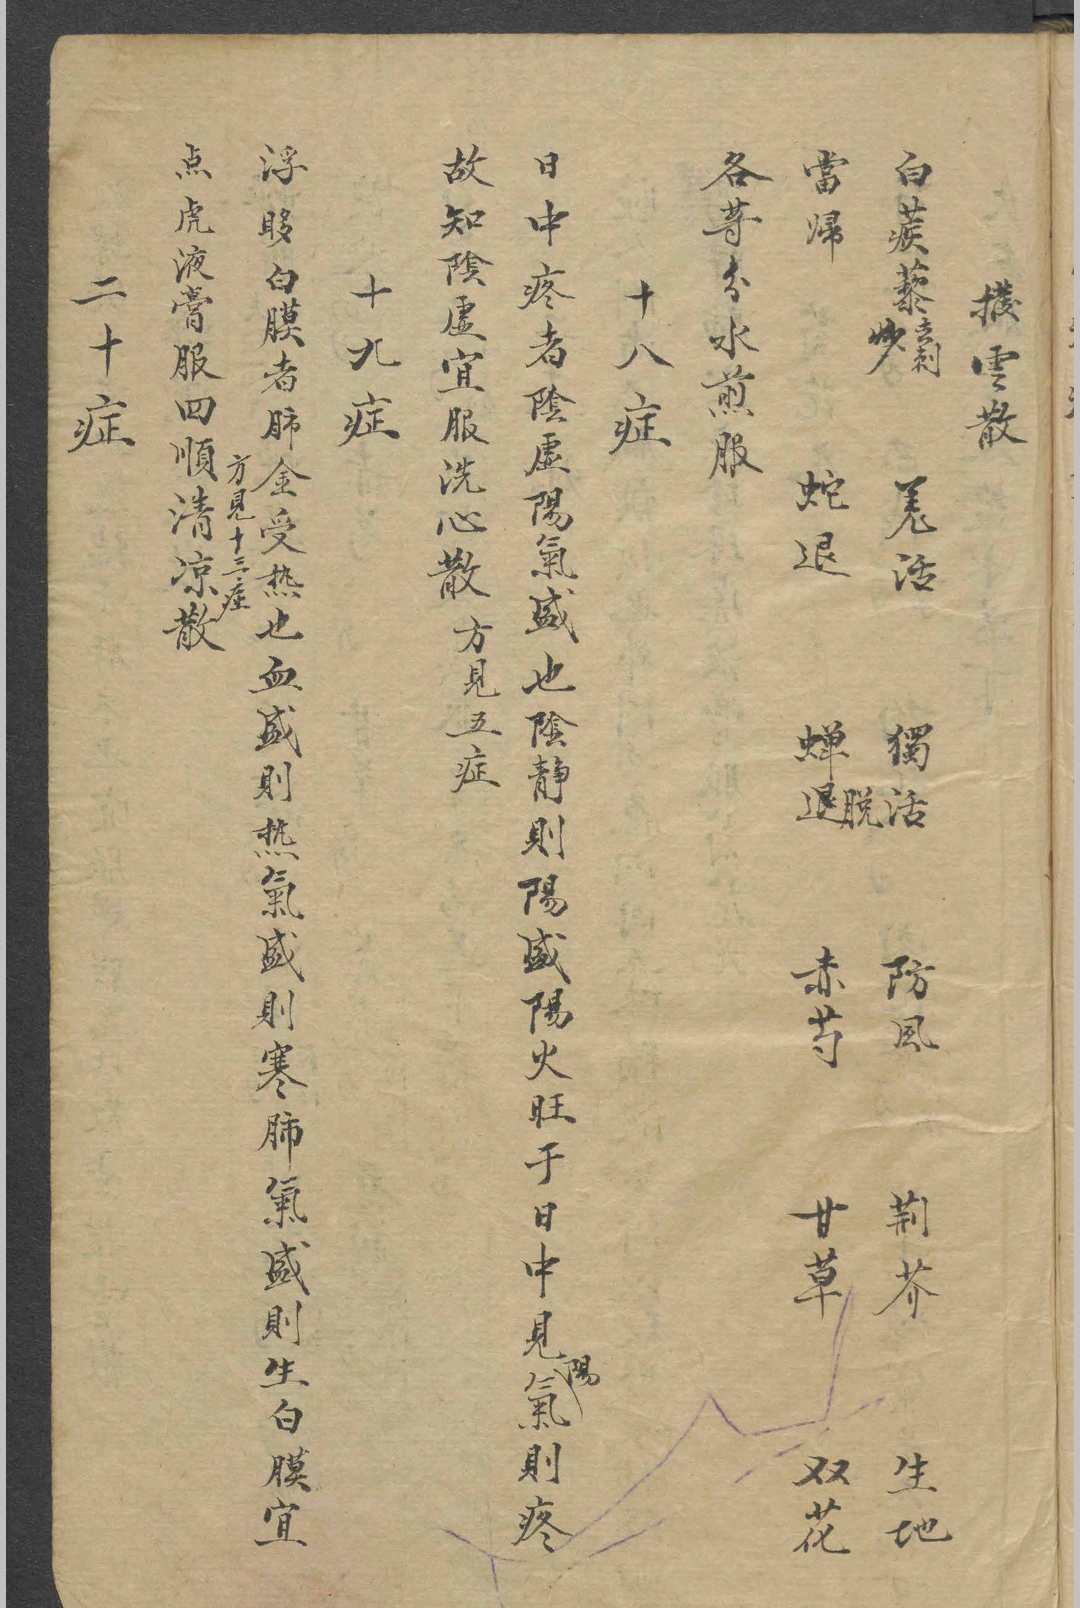 撥雲散
白蒺藜去刺炒　羌活　獨活　防風　荆芥　生地
當歸　蛇退　蝉退脱　赤芍　甘草　双花
各等分水煎服
十八症
日中疼者陰虛陽氣盛也陰静則陽盛陽火旺于日中見陽氣則疼
故知陰虛宜服洗心散方見五症
十九症
浮眵白膜者肺金受热也血盛則热氣盛則寒肺氣盛則生白膜宜
点虎液膏服四順清凉散方見十三症
二十症